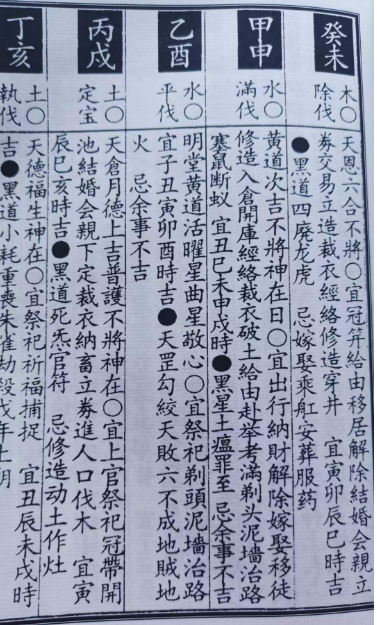 癸未
木〇
除伐
天恩六合不將〇宜冠笄給由移居解除結婚會親立
券交易立造裁衣經絡修造穿井　宜寅卯辰巳時吉
●黑道四廢龙虎　忌嫁娶乘舡安葬服药
甲申
水〇
滿伐
黃道次吉不將神在日〇宜出行納財解除嫁娶移徒
修造入倉開庫經絡裁衣破土給由赴举考滿剃头泥墻治路
塞鼠断蚁　宜丑巳未申戌時●黑星土瘟罪至　忌余事不吉
乙酉
水〇
平伐
明堂黃道活曜星曲星敬心〇宜祭祀剃頭泥墻治路
宜子丑寅卯酉時吉●天罡勾絞天敗六不成地賊地
火　忌余事不吉
丙戌
土〇
定宝
天倉月德上吉普護不將神在〇宜上官祭祀冠帶開
池結婚会親下定裁衣納畜立券進人口伐木　宜寅
辰巳亥時吉●黑道死炁官符　忌修造动土作灶
丁亥
土〇
執伐
天德福生神在〇宜祭祀祈福捕捉　宜丑辰未戌時
吉●黑道小耗重喪朱雀劫殺